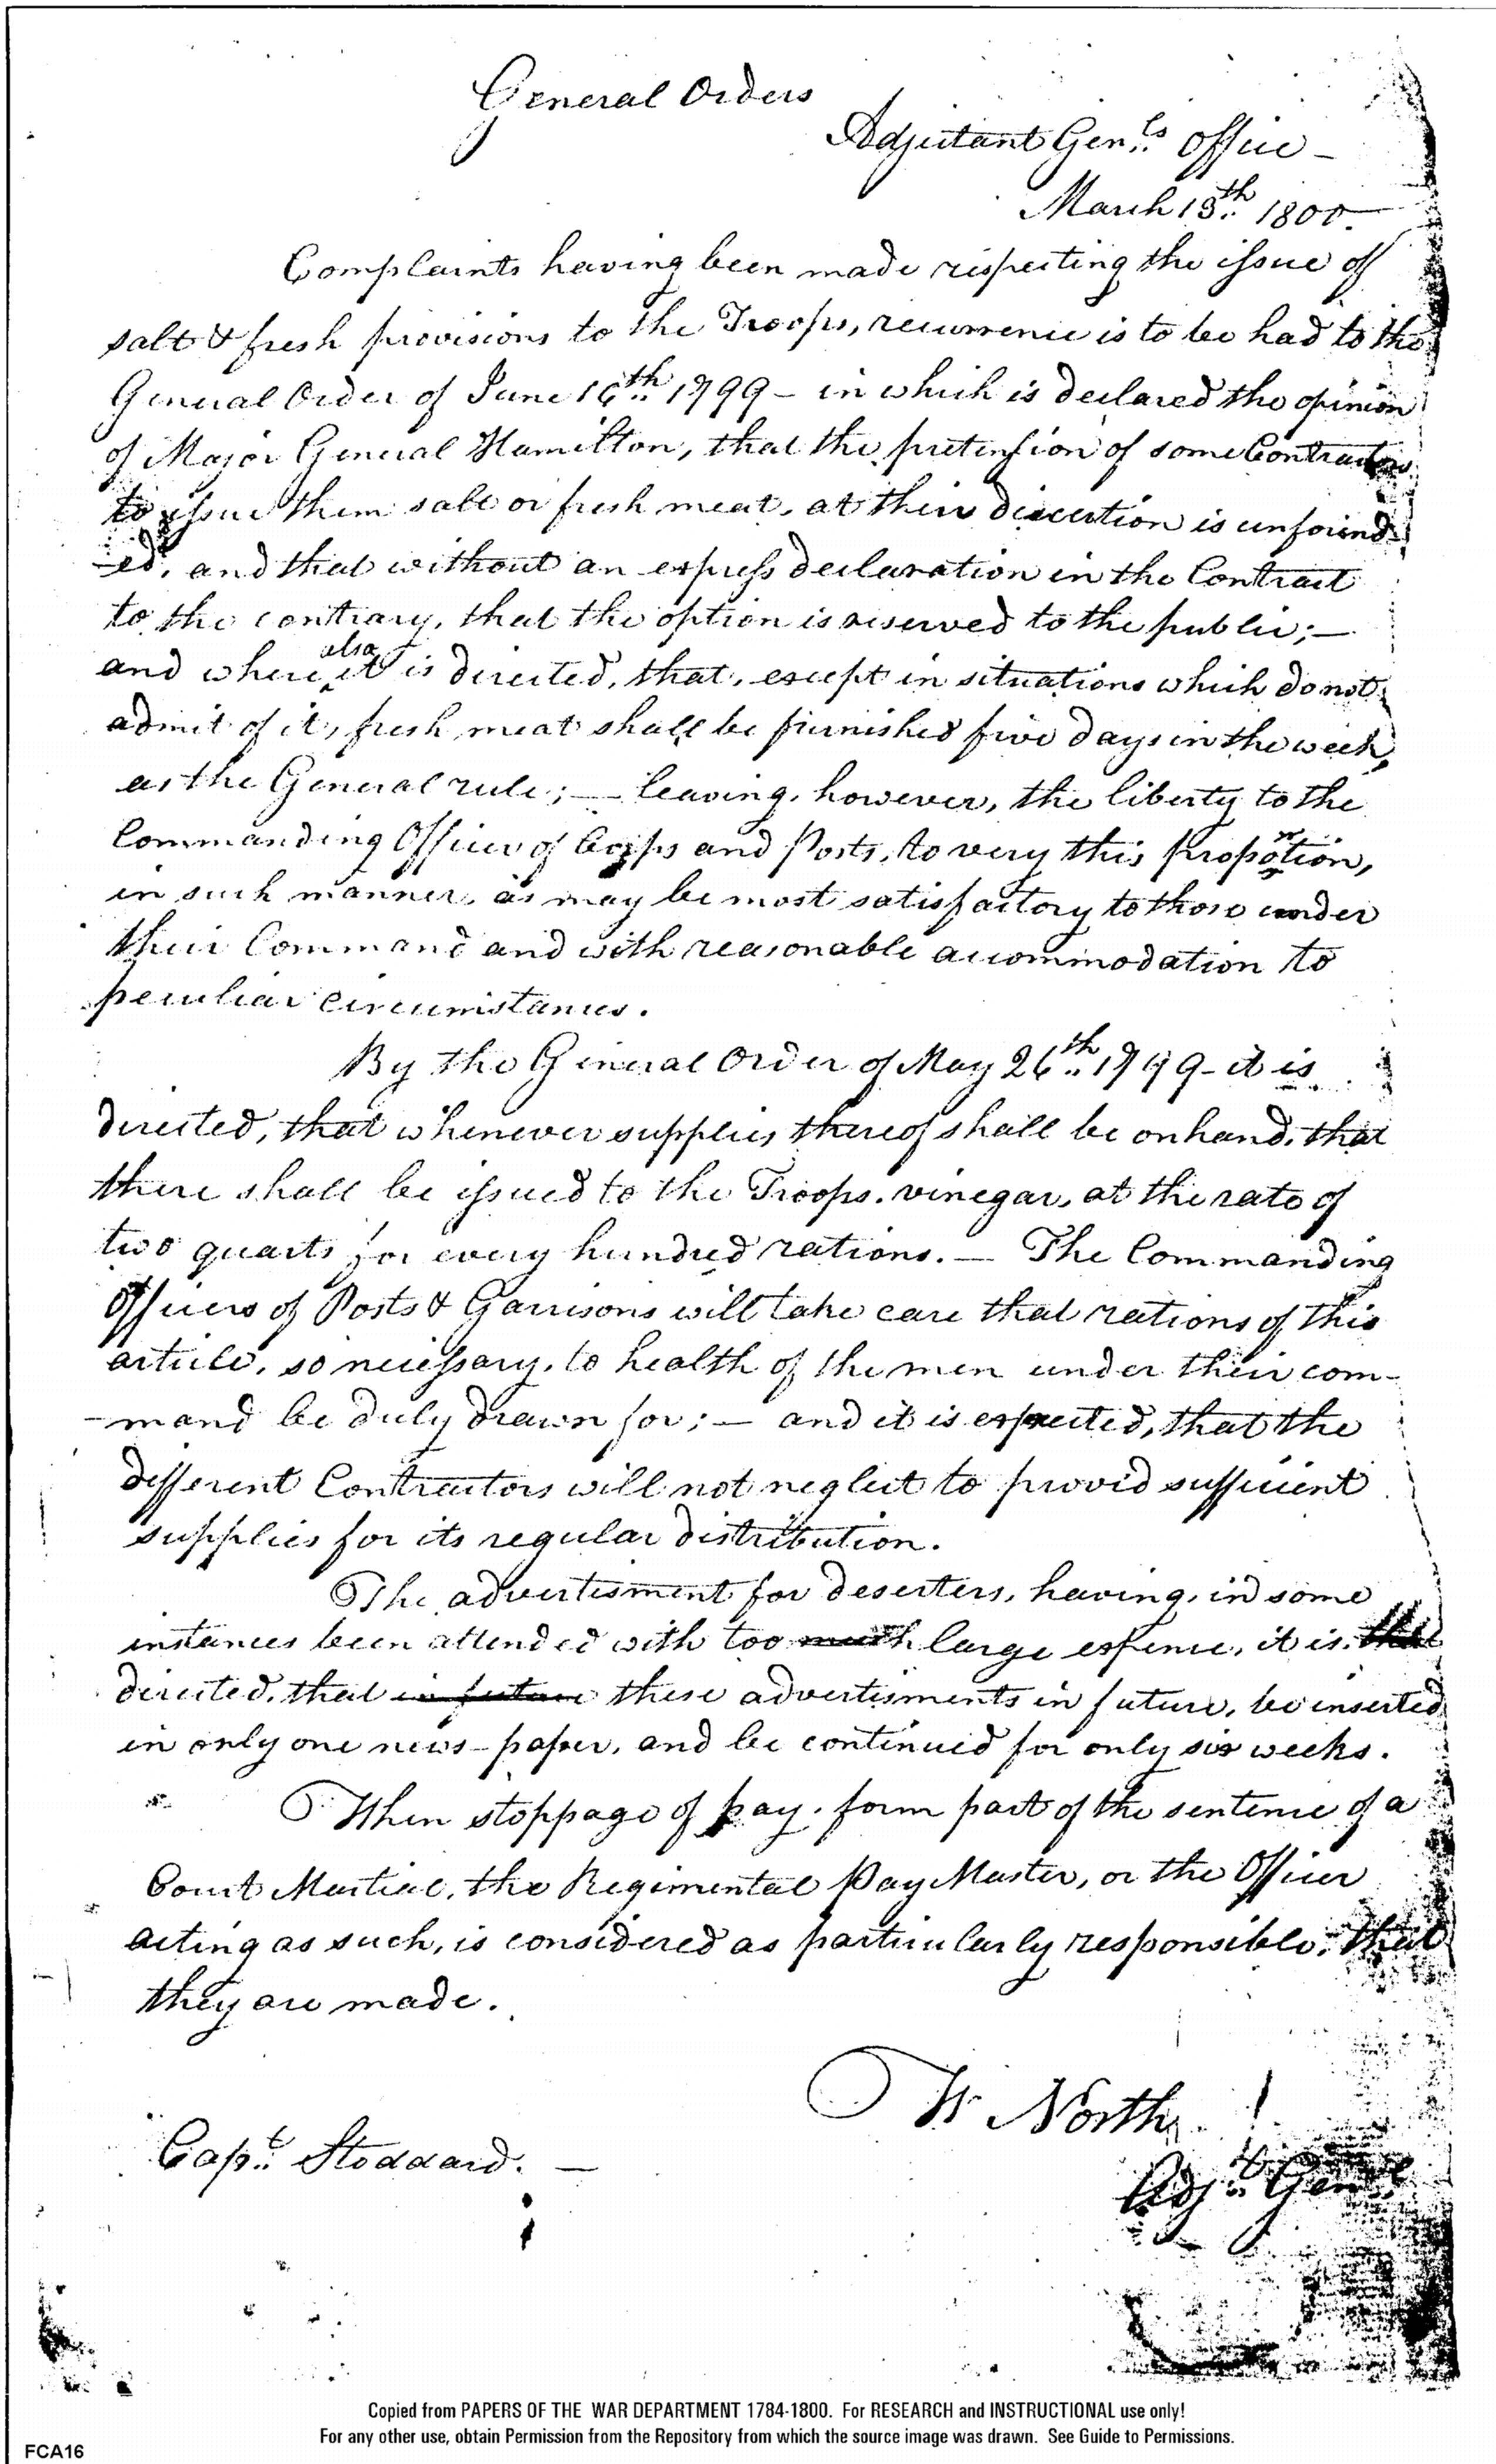 General Orders
Adjutant Gen.ls Office –
March 13.th 1800.
Complaints having been made respecting the issue of
salt & fresh provisions to the Troops, recurrence is to be had to the
General Order of June 16.th 1799 – in which is declared the opinion
of Major General Hamilton, that the pretension of some Contractors
to issue them salt or fresh meat, at their discretion is unfound-
-ed, and that without an express declaration in the Contract
to the contrary, that the option is reserved to the public; –
and where also it is directed, that, except in situations which do not
admit of it, fresh meat shall be furnished five days in the week,
as the General rule; — leaving, however, the liberty to the
Commanding Officer of Corps and Posts, to very this proportion,
in such manner, as may be most satisfactory to those under
their Command and with reasonable accommodation to
peculiar circumstances.
By the General Order of May 26.th 1799 – it is
directed, that whenever supplies thereof shall be on hand, that
there shall be issued to the Troops, vinegar, at the rate of
two quarts for every hundred rations. — The Commanding
Officers of Posts & Garrisons will take care that rations of this
article, so necessary, to health of the men under their com-
-mand be duly drawn for; — and it is expected, that the
different Contractors will not neglect to provid sufficient
supplies for its regular distribution.
The advertisment for deserters, having, in some
instances been attended with too much large expence, it is that
directed, that in future these advertisments in future, be inserted
in only one news-paper, and be continued for only six weeks.
When stoppage of pay, form part of the sentence of a
Court Martial, the Regimental Pay Master, or the Officer
acting as such, is considered as particularly responsible, that
they are made.
W North
Adj.t Genl
Cap.t Stoddard. —
Copied from PAPERS OF THE WAR DEPARTMENT 1784-1800. For RESEARCH and INSTRUCTIONAL use only!
For any other use, obtain Permission from the Repository from which the source image was drawn. See Guide to Permissions.
FCA16